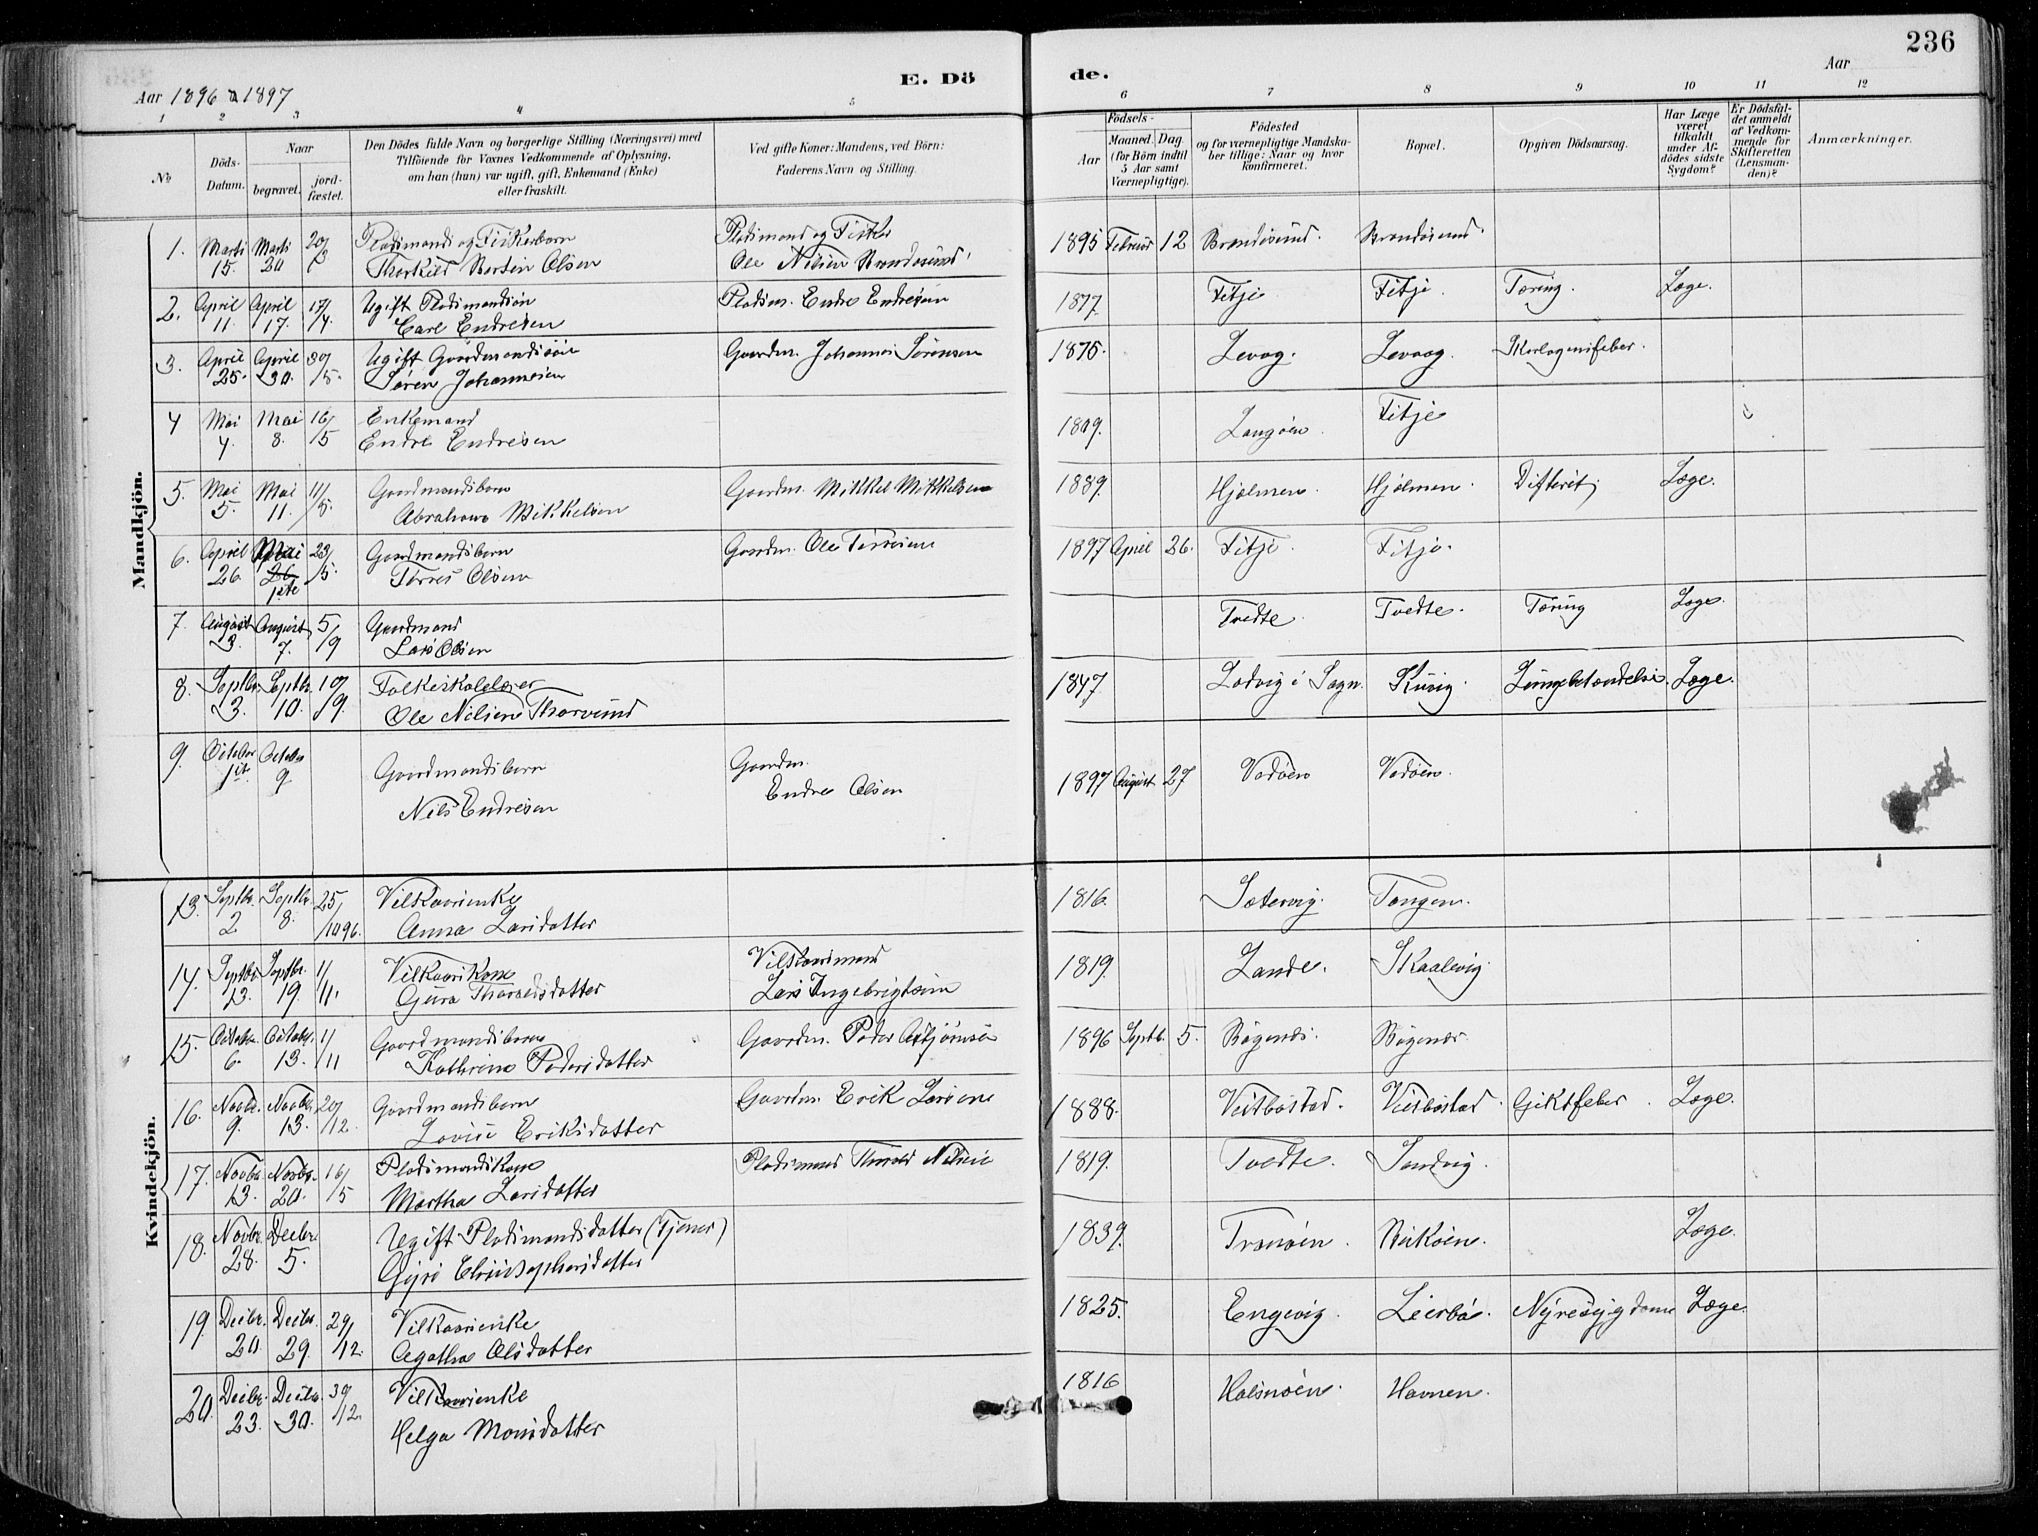 236
E. Dö de.
Aar 1896 & 1897
Aar
1 2 3 4 5 6 7 8 9 10 11 12
No
Döds-Datum.
Naar
begravet.
jord-fæstet.
Den Dödes fulde Navn og borgerlige Stilling (Næringsvei) med
Tilföiende for Voxnes Vedkommende af Oplysning,
om han (hun) var ugift, gift, Enkemand (Enke)
eller fraskilt.
Ved gifte Koner: Mandens, ved Börn:
Faderens Navn og Stilling.
Födsels-
Aar
Maaned. Dag.
(for Börn indtil
5 Aar samt
Værnepligtige).
Födested
og for værnepligtige Mandska-
ber tillige: Naar og hvor
konfirmeret.
Bopæl.
Opgiven Dödsaarsag.
Har Læge
været
tilkaldt
under Af-
dödes sidste
Sygdom?
Er Dödsfal-
det anmeldt
af Vedkom-
mende for
Skifteretten
(Lensman-
den)?
Anmærkninger.
Mandkjön.
1. Marts 15. Marts 20 Pladsmands og Fiskerbarn Pladsmand og Fisker 1895 Februar 12 Brandasund. Brandasund.
Thorkild Bertin Olsen Ole Nilsen Brandasund
2. April 11. April 17. 17/4. Ugift Pladsmandssön Pladsm. Endre Endresen 1877. Fitje Fitje Tæring. Læge.
Carl Endresen
3. April 25. April 30. 30/5. Ugift Gaardmandssön Gaardm. Johannes Sörensen 1875. Levaag. Levaag. Skarlagensfeber.
Sören Johannesen
4 Mai 4. Mai 8. 16/5 Enkemand 1809. Langöen. Fitje
Endre Endresen
5. Mai 5. Mai 11. 11/5. Gaardmandsbarn Gaardm. Mikkel Mikkelsen 1889. Hjelmen. Hjelmen. Difterit Læge.
Abraham Mikkelsen
6. April 26. Mai 26 1ste 23/5. Gaardmandsbarn Gaardm. Ole Torresen 1897 April 26. Fitje. Fitje.
Torres Olsen
7. August 3. August 7. 5/9 Gaardmand Tvedte. Tvedte. Tæring Læge.
Lars Olsen
8. Septbr. 3. Septbr. 10. 10/9. Folkeskolelærer 1847. Ladvig i Sogn. Rusvig. Lungebetændelse. Læge.
Ole Nilsen Thorsund
9. October 1st. October 9. Gaardmandsbarn Gaardm. 1897 August 27 Vadöen Vadöen.
Nils Endresen Endre Olsen
Kvindekjön.
13. Septbr. 2 Septbr. 8. 25/10 96. Vilkaarsenke 1816. Sætervig. Tangen.
Anna Larsdatter
14. Septbr. 13. Septbr. 19. 1/11. Vilkaarskone Vilkaarsmand 1819. Lande. Skaalevig.
Gjura Tharaldsdatter Lars Ingebrigtsen
15. Octobr. 6. Octobr. 13. 1/11 Gaardmandsbarn Gaardm. Peder Asbjörnsen 1896 Septb. 5. Bögenæs. Bögenæs
Kathrine Pedersdatter
16. Novbr. 9. Novbr. 13. 20/12. Gaardmandsbarn Gaardm. Erik Larsen 1888. Vestböstad. Vestbostad. Giktfeber. Læge.
Lovise Eriksdatter
17. Novbr. 13. Novbr. 20. 16/5 Pladsmandskone Pladsmand Tharald Nilsen 1819. Tvedte. Sandvig.
Martha Larsdatter
18. Novbr. 28. Decbr. 5. Ugift Pladsmandsdatter (Tjener) 1839. Tranöen. Læge.
19. Decbr. 20. Decbr. 29. 29/12. Vilkaarsenke 1825. Engevig. Leirbö. Nyresygdom Læge.
Agatha Olsdatter
20. Decbr. 23. Decbr. 30. 30/12. Vilkaarsenke 1816 Halsnöen. Havnen.
Helga Monsdatter